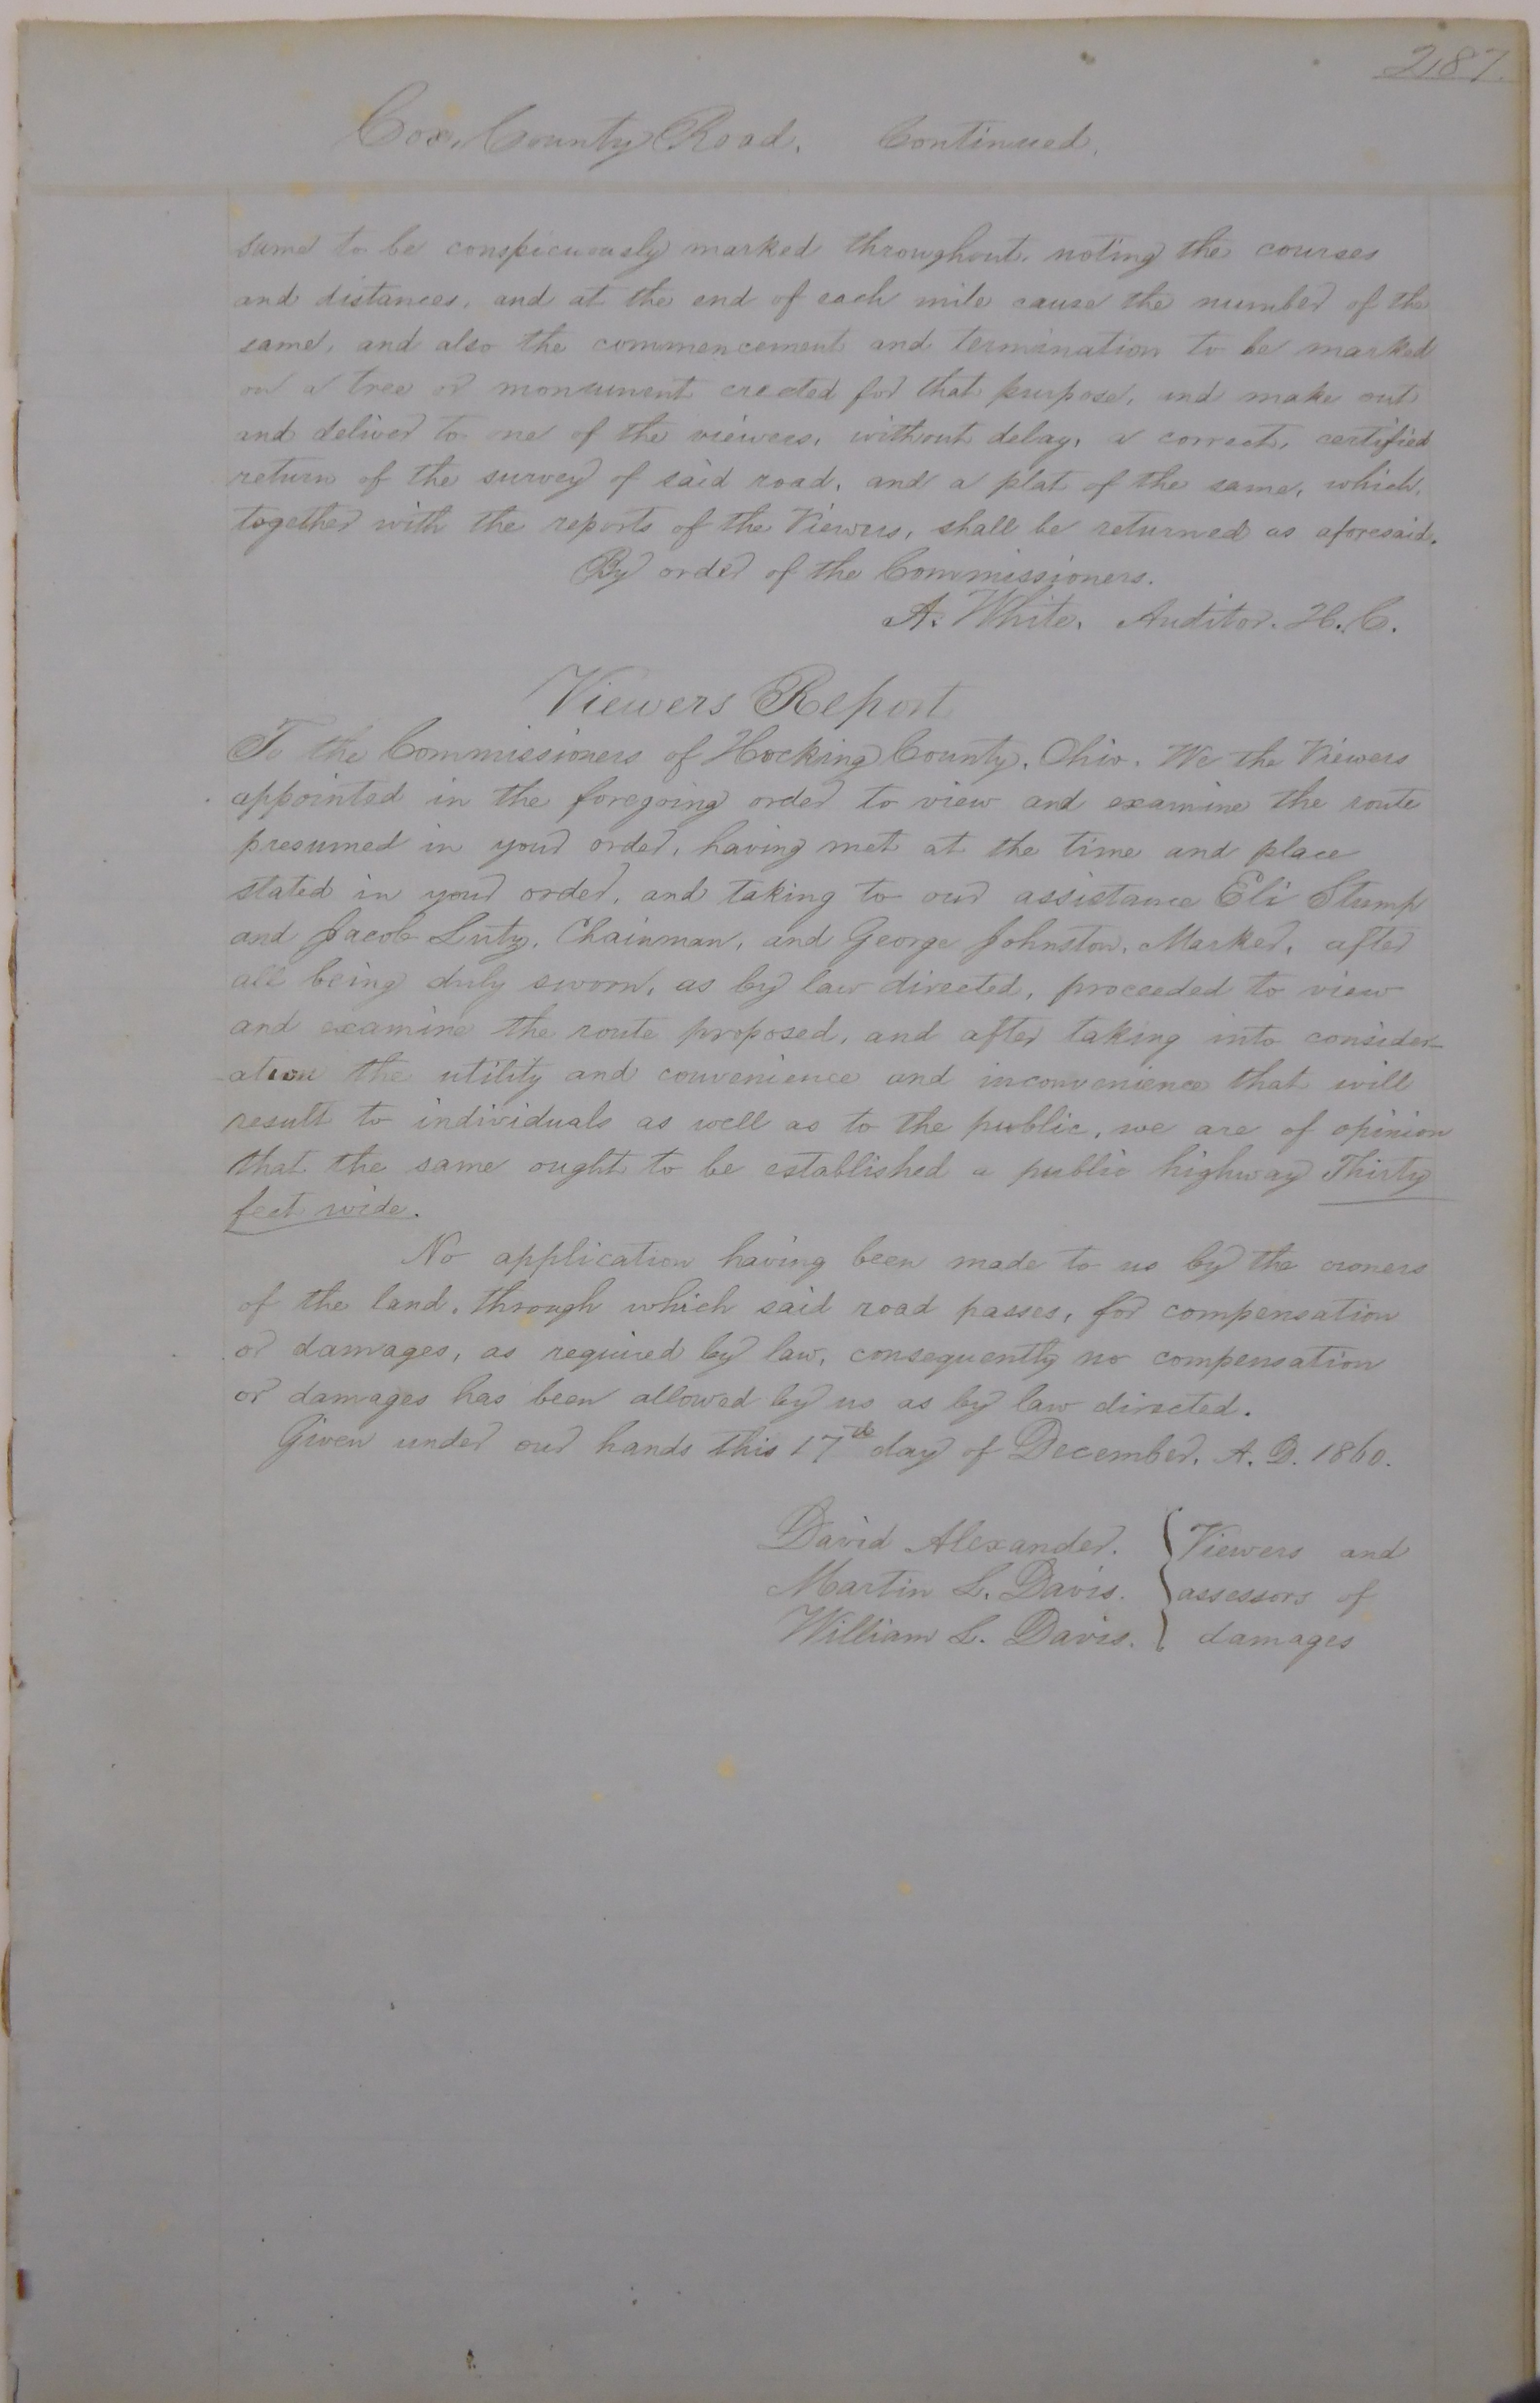 287.
Cox, County Road. Continued.
same to be conspicuously marked throughout, noting the courses
and distances, and at the end of each mile cause the number of the
same, and also the commencement and termination to be marked
on a tree or monument erected for that purpose, and make out
and deliver to one of the viewers, without delay, a correct, certified
return of the survey of said road, and a plat of the same, which,
together with the reports of the Viewers, shall be returned as aforesaid.
By order of the Commissioners.
A. White, Auditor. H. C.
Viewers Report
To the Commissioners of Hocking County, Ohio. We the Viewers
appointed in the foregoing order to view and examine the route
presumed in your order, having met at the time and place
stated in your order, and taking to our assistance Eli Stump
and Jacob Luty, Chainman, and George Johnston, Marker, after
all being duly sworn, as by law directed, proceeded to view
and examine the route proposed, and after taking into consider-
-ation the utility and convenience and inconvenience that will
result to individuals as well as to the public, we are of opinion
that the same ought to be established a public highway Thirty
feet wide.
No application having been made to us by the owners
of the land, through which said road passes, for compensation
or damages, as required by law, consequently no compensation
or damages has been allowed by us as by law directed.
Given under our hands this 17th day of December, A. D. 1860.
David Alexander. } Viewers and
Martin L. Davis. } assessors of
William L. Davis. } damages